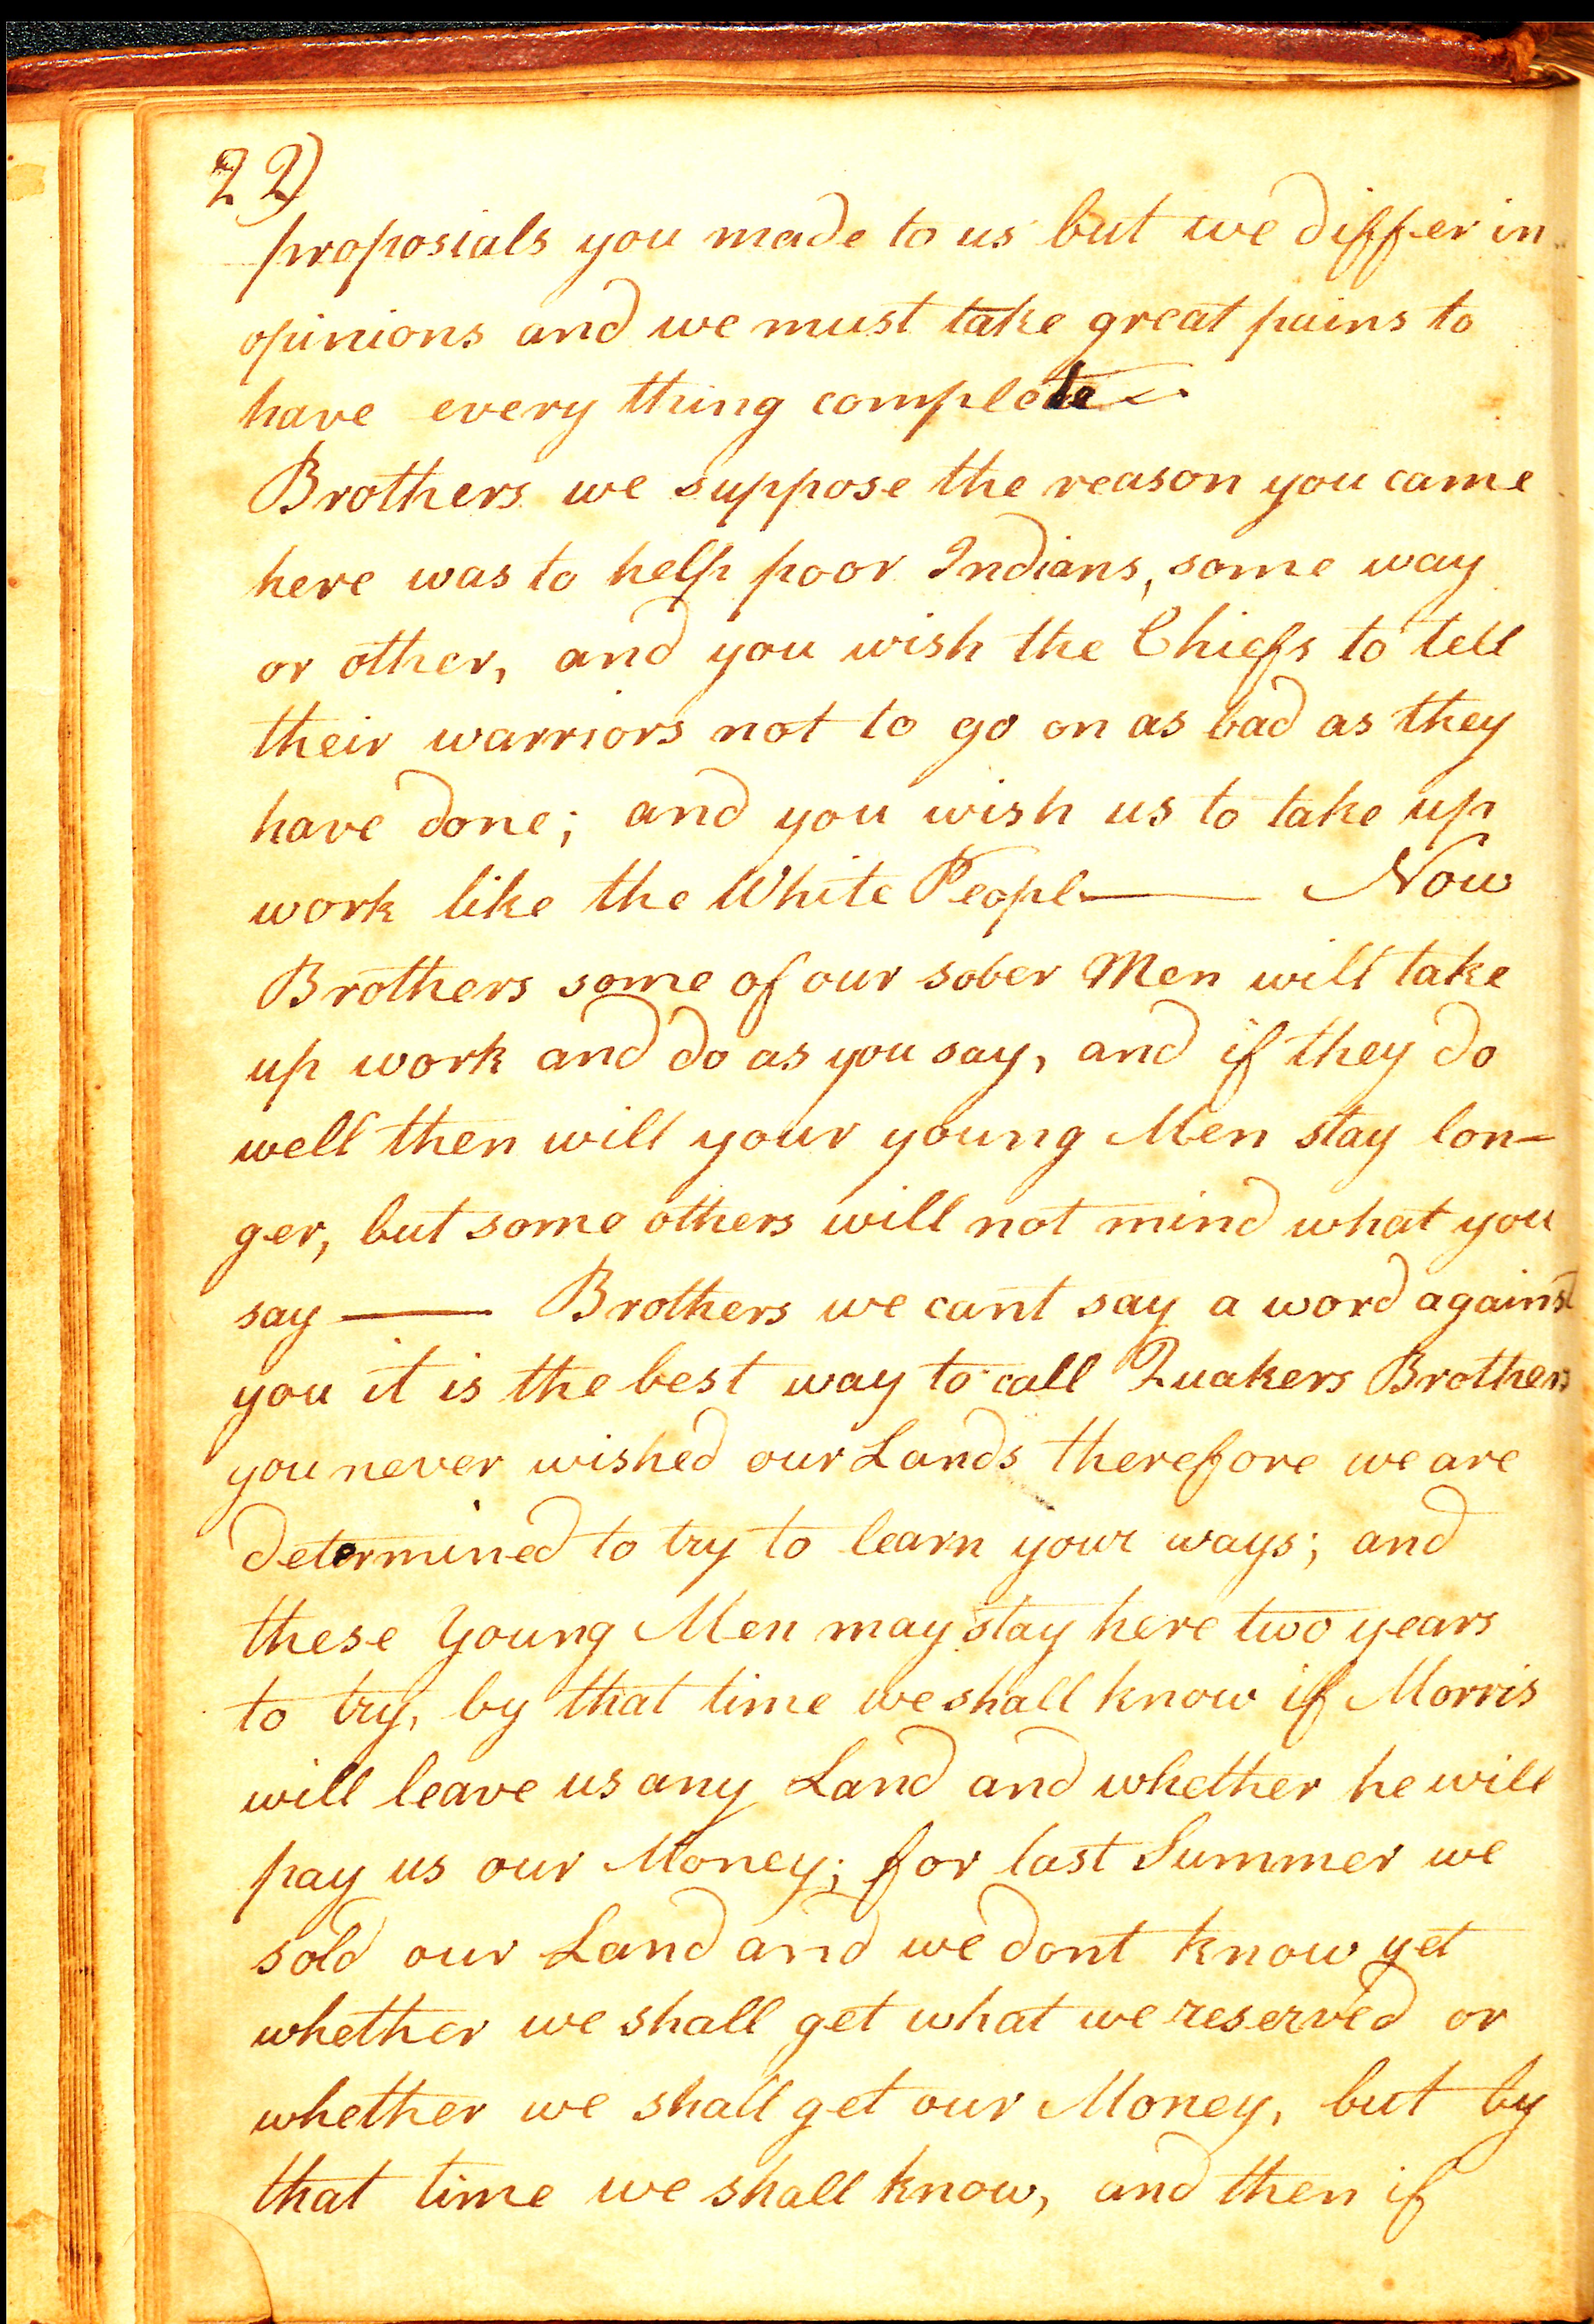 22)
proposials you made to us but we differ in
opinions and we must take great pains to
have every thing complete
Brothers we suppose the reason you came
here was to help poor Indians, some way
or other, and you wish the Chiefs to tell
their warriors not to go on as bad as they
have done; and you wish us to take up
work like the White People—— Now
Brothers some of our sober Men will take
up work and do as you say, and if they do
well then will your young Men stay lon-
ger, but some others will not mind what you
say —— Brothers we cant say a word against
you it is the best way to call Quakers Brothers
you never wished our Lands therefore we are
determined to try to learn your ways; and
these Young Men may stay here two years
to try, by that time we shall know if Morris
will leave us any Land and whether he will
pay us our Money; for last Summer we
sold our Land and we dont know yet
whether we shall get what we reserved or
whether we shall get our Money, but by
that time we shall know, and then if